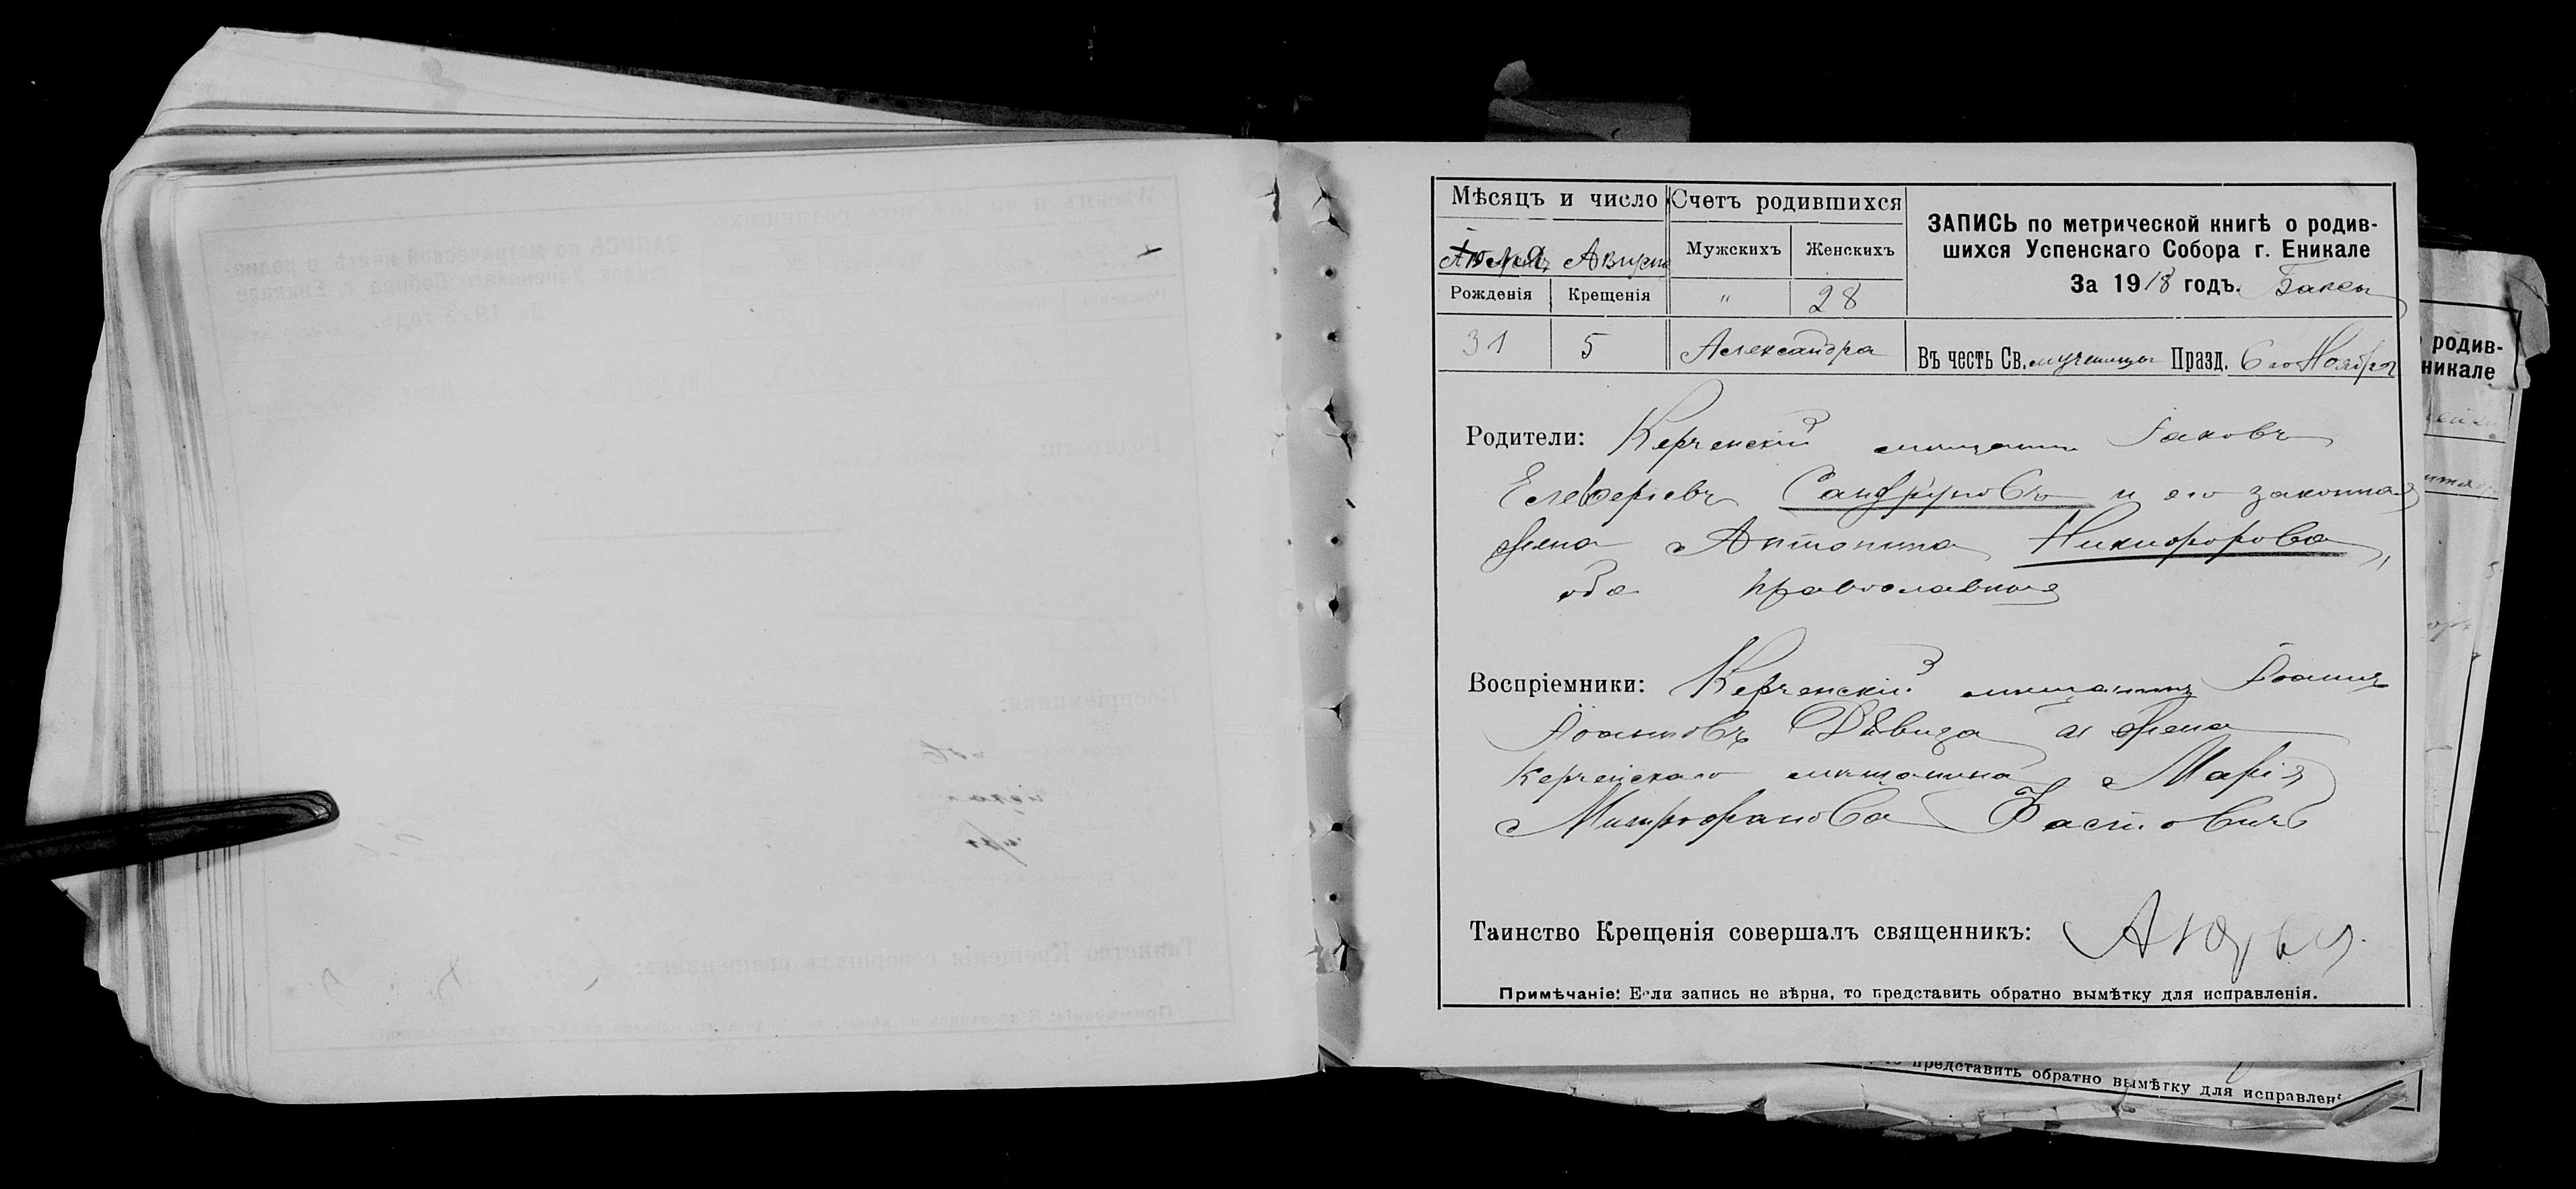 Мѣсяцъ и число
Счетъ родившихся
ЗАПИСЬ по метрической книгѣ о родив-
шихся Успенскаго Собора г. Еникале
За 1918 годъ. Баксы
Іюля Августа
Мужскихъ Женскихъ
Рожденія Крещенія
" 28
31 5 Александра
Въ честь Св. мученицы Празд. 6го Ноября
Родители: Керченскій мѣщанинъ Іаковъ
Елевѳеріевъ и его законная
жена Антонина Никифорова,
оба православные
Воспріемники: Керченскій мѣщанинъ Іоаннъ
Іоанновъ Дѣвиза и жена
Керченскаго мѣщанина Марія
Митрофанова
Таинство Крещенія совершалъ священникъ:
Примѣчаніе: Если запись не вѣрна, то представить обратно вымѣтку для исправленія.
родив-
никале
представить обратно вымѣтку для исправлені